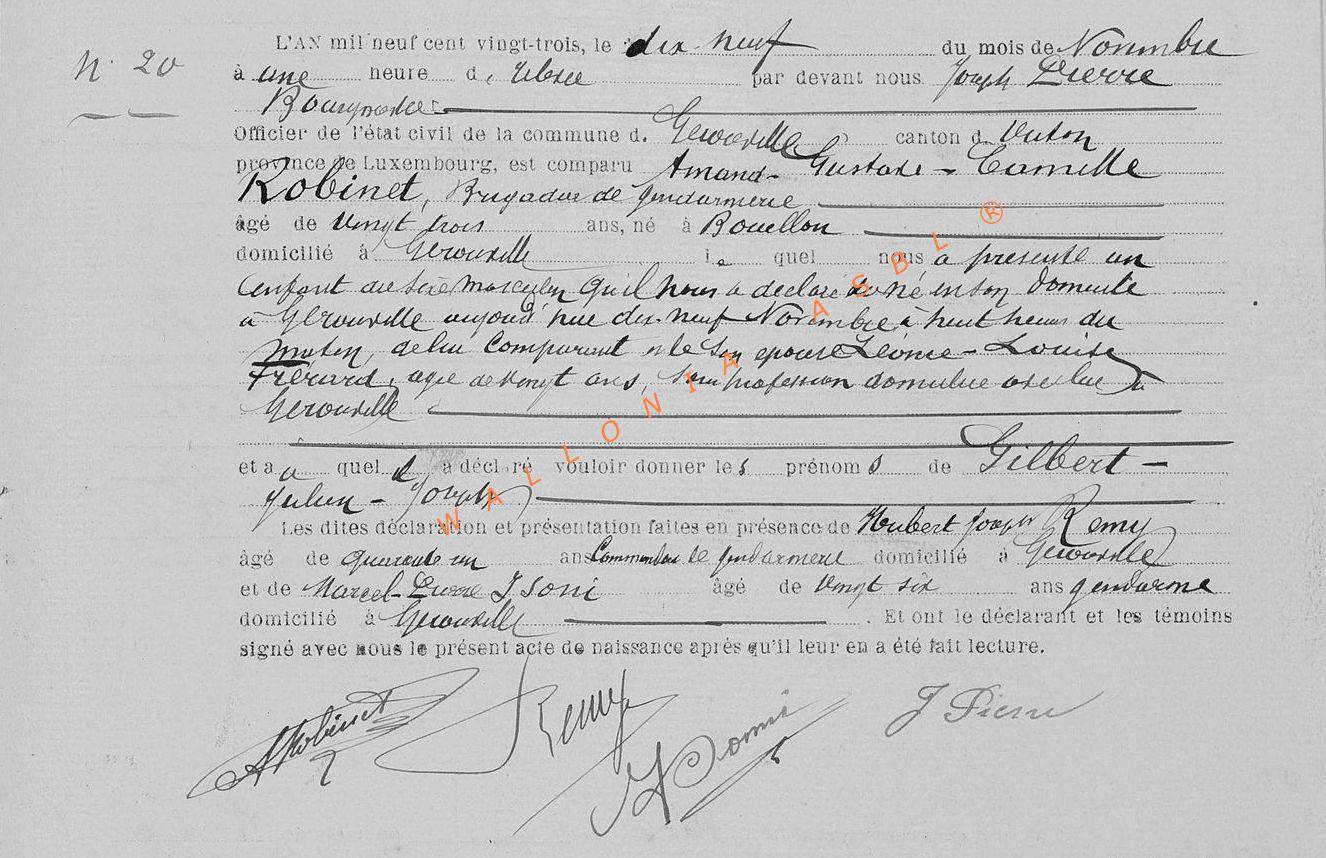 L'AN mil neuf cent vingt-trois, le dix neuf du mois de Novembre
N° 20
à une heure d, relevée par devant nous Joseph Pierre
Bourgmestre
Officier de l'état civil de la commune d. Gérouville canton d. Virton
province de Luxembourg, est comparu Amand - Gustave - Camille
Robinet, Brigadier de gendarmerie
âgé de vingt trois ans, né à Bouillon
domicilié à Gérouville le quel nous a présenté un
enfant du sexe masculin qu'il nous a déclaré être né en son domicile
à Gérouville aujourd'hui dix-neuf Novembre à huit heures du
matin, de lui comparant et de son épouse Léonie - Louise
Frérard, agée de vingt ans, sans profession domiciliée avec lui à
Gérouville
et a quel il a déclaré vouloir donner les prénoms de Gilbert -
Julien - Joseph
Les dites déclaration et présentation faites en présence de Hubert Joseph Remy
âgé de quarante un ans Commandant de gendarmerie domicilié à Gérouville
et de Marcel-Pierre âgé de vingt six ans gendarme
domicilié à Gérouville . Et ont le déclarant et les témoins
signé avec nous le présent acte de naissance après qu'il leur en a été fait lecture.
ARobinet Remy J Pierre
WALLONIA ASBL ®